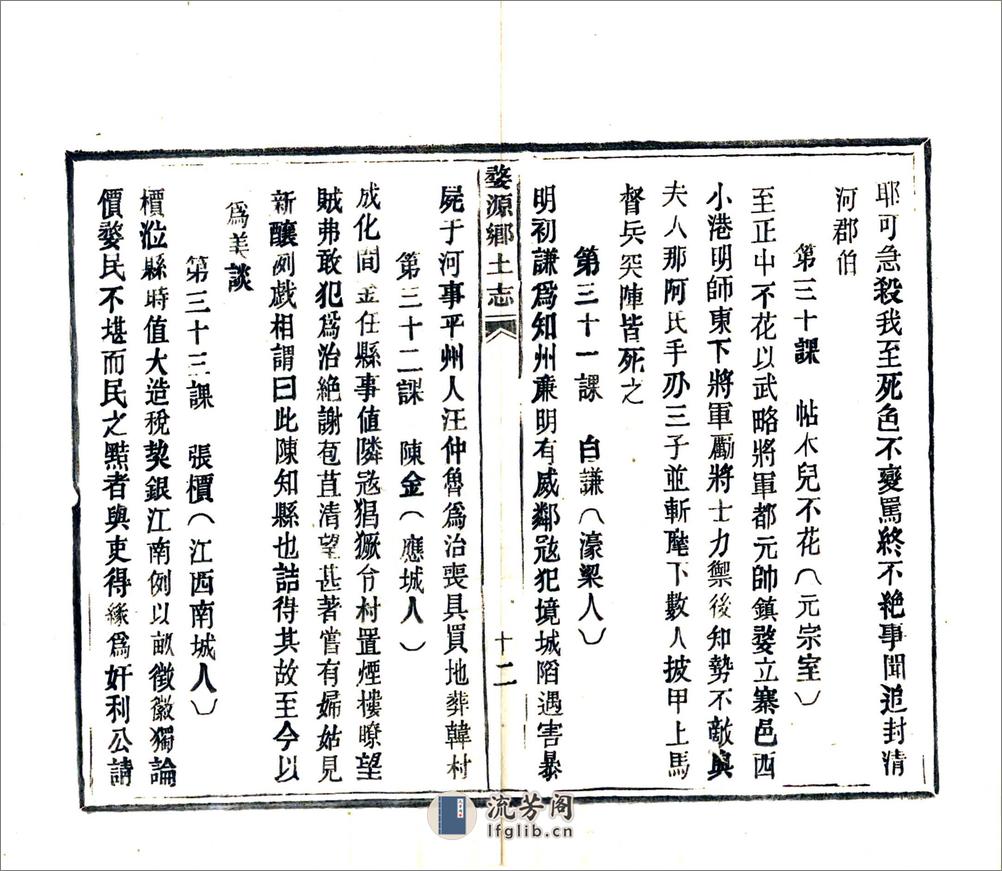 耶可急殺我至死色不變罵終不絶事聞追封清
河郡伯
第三十課　帖木兒不花（元宗室）
至正中不花以武略將軍都元帥鎮婺立寨邑西
小港明師東下將軍勵將士力禦後知勢不敵與
夫人那阿氏手刃三子並斬麾下數人披甲上馬
督兵突陣皆死之
第三十一課　白謙（濠梁人）
明初謙爲知州廉明有威鄰寇犯境城陷遇害暴
婺源鄉土志
十二
屍于河事平州人汪仲魯爲治喪具買地葬韓村
第三十二課　陳金（應城人）
成化間金任縣事值隣寇猖獗令村置煙樓暸望
賊弗敢犯爲治絶謝苞苴清望甚著嘗有婦姑見
新釀冽戲相謂曰此陳知縣也詰得其故至今以
爲美談
第三十三課　張檟（江西南城人）
檟涖縣時值大造稅契銀江南例以畝徵徽獨論
價婺民不堪而民之黠者與吏得緣爲奸利公請
流芳阁
lfglib.cn